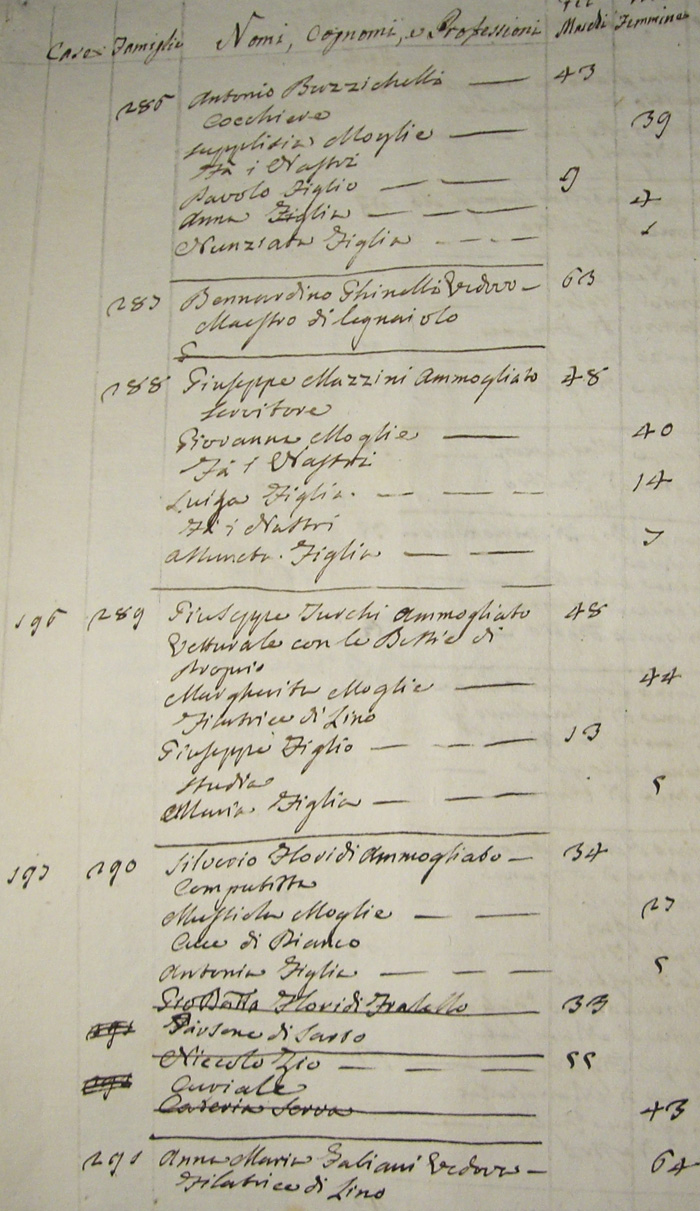 Case Famiglie Nomi, Cognomi, e Professioni Maschi Femmine
286 Antonio Buzzichelli — 43
Cocchiere
Supplizia Moglie — 39
Fà i Nastri
Pavolo Figlio — — 9
Anna Figlia — — — 7
Nunziata Figlia - - - 1
287 Bernardino Ghinelli Vedovo — 63
Maestro di legnaiolo
288 Giuseppe Mazzini Ammogliato 48
Servitore
Giovanna Moglie — 40
Fà i Nastri
Luisa Figlia. — — — 14
Fà i Nastri
Assunta. Figlia — — — 7
196 289 Giuseppe Turchi Ammogliato 48
Vetturale con le Bestie di
proprio
Margherita Moglie — 44
Filatrice di Lino
Giuseppe Figlio — — — 13
studia
Maria Figlia — — — 5
197 290 Silverio Floridi Ammogliato — 34
Computista
Moglie — — 27
Cuce di Bianco
Antonia Figlia — — — 5
Gio Batta Floridi Fratello 33
291 di
Niccolò Zio — — — 55
292
Caterina Serva 43
291 Anna Maria Galiani Vedova — 64
Filatrice di Lino